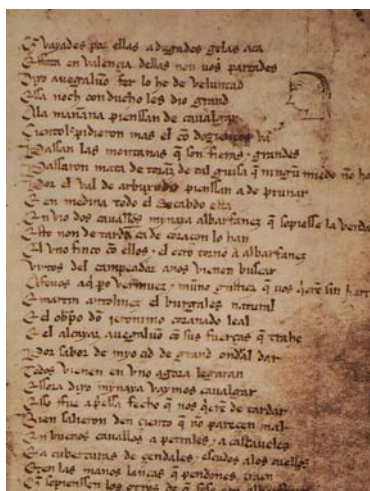 E vayades por ellas adugades gelas aca
ffata en valençia dellas non uos partades
Dixo auegaluo fer lo he de veluntad
Essa noch conducho les dio grand
A la mañana pienssan de caualgar
Çientol pidieron mas el co dozientos va
Passan las montanas q son fieras & grandes
Passaron mata de toraz de tal guisa q ningu miedo no ha
Por el val de arbuxedo pienssan a deprunar
E en medina todo el Recabdo esta
Envio dos cauallos mynaya albarfanez q sopiesse la verda
Esto non detarda ca de coraçon lo han
El vno finco co ellos & el otro torno a albarfanez
Virtos del campeador anos vienen buscar
Afeuos aq po vermuez & muño gustioz q uos qere sin hart
E martin antolinez el burgales natural
E el obpo do jeronimo coranado leal
E el alcayaz auegaluo co sus fuerças q trahe
Por sabor de myo çid de grand ondral dar
Todos vienen en vno agora legaran
Essora dixo mynaya vaymos caualgar
Esso ffue apssa fecho q nos qere detardar
Bien salieron den çiento q no pareçen mal
En buenos cauallos a petrales & a cascaueles
E a cuberturas de çendales & escudos a los cuellos
E en las manos lanças q pendones traen
sopienssen los otros de q